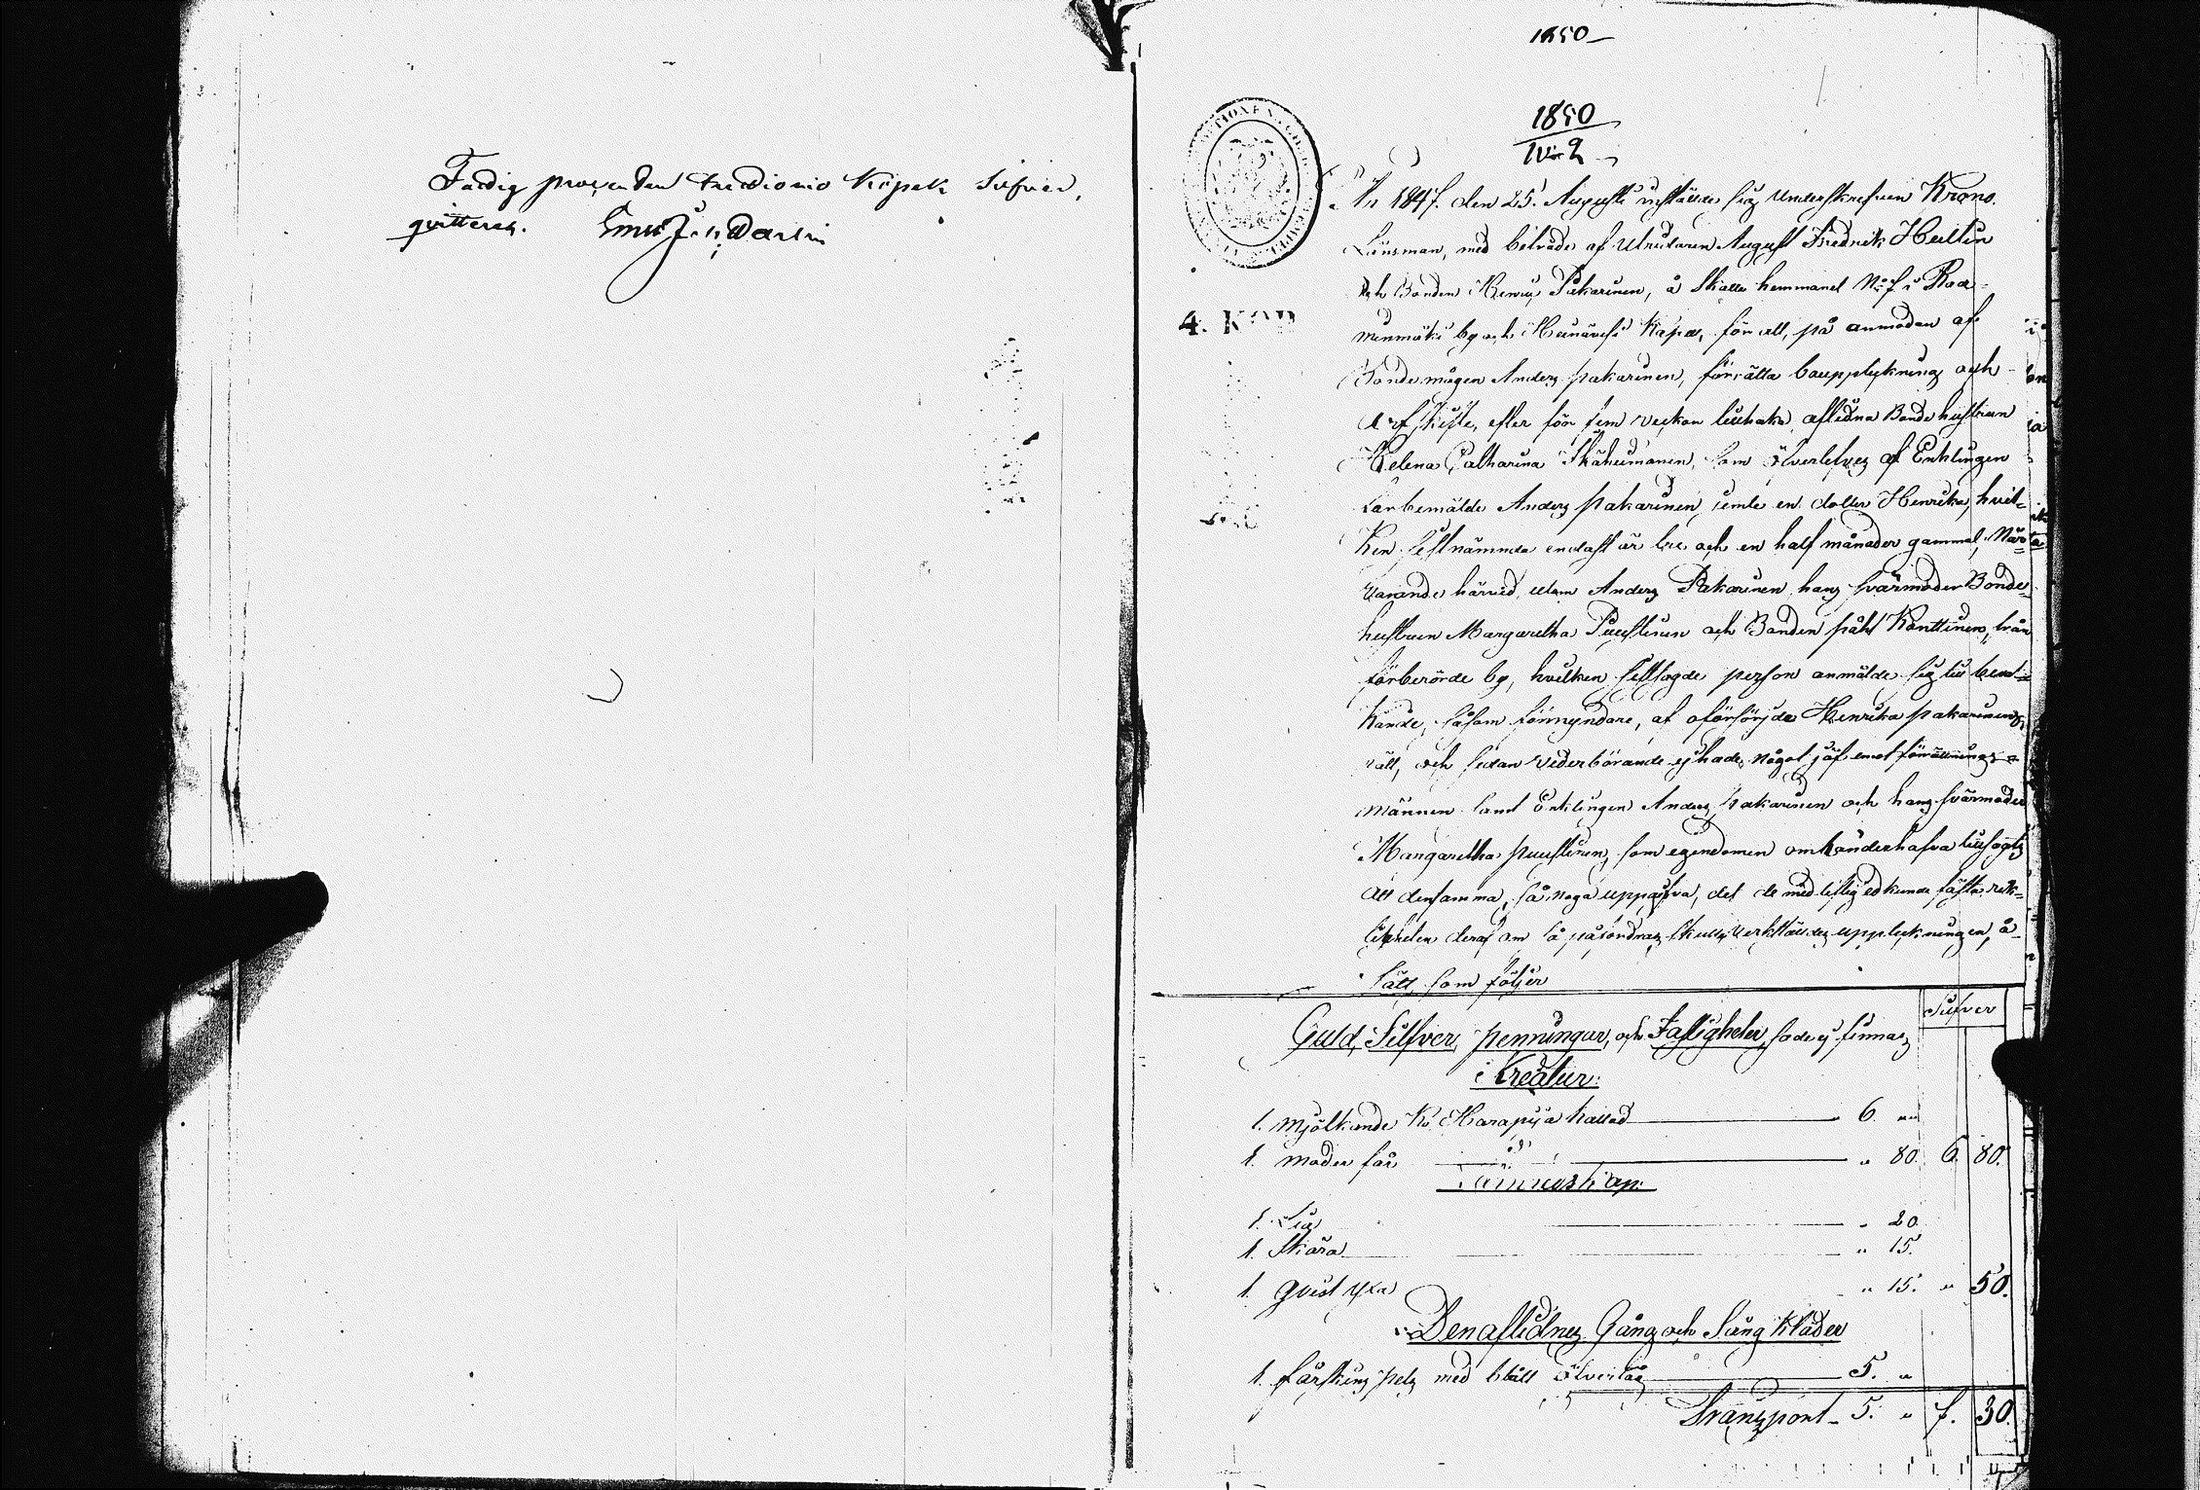 Fattig procenten tretionio Kopek Silfver,
qvitteras.
1850
1850
N:o 2
År 1847. den 25. Augusti instälde sig Underskrefven Krono
Länsman, med biträde af Utridaren August Fredrik Hellin
och Bonden Henric Pakarinen, å Skatte hemmanet N:o 7 i
4. KOP
by och Heinävesi Kapel, för att, på anmodan af
Bonde mågen Anders Pakarinen, förrätta bouppteckning och
arfskifte, efter för fem veckor tillbaka aflidna Bonde hustrun
Helena Catharina som öfverlefves af Enklingen
förbemälde Anders Pakarinen, jemte en dotter Henrika, hvil-
ken sistnämnde endast är tre och en half månader gammal, När-
varande härvid, utom Anders Pakarinen, hans svärmoder Bonde
hustrun Margaretha Puustinen och Bonden Påhl Konttinen, från
förberörde by, hvilken sistsagde person anmälde sig till bevak-
kande, såsom förmyndare, af oförsörjda Henrika Pakarinens
rätt, och sedan vederbörande ej hade något jäf emot förrättnings-
männen samt Enklingen Anders Pakarinen och hans svärmoder
Margaretha Puustinen, som egendomen omhänderhafva tillsagts
att densamma, så noga uppgifva, det de med liflig ed kunde fästa rik-
tigheten deraf om så påfordras, skulle verkställdes uppteckningen, å
sätt som följer
Silfver
Guld, Silfver, penningar, och Fastigheter, sade ej finnas
Kreatur:
1. mjölkande Ko Harapija kallad 6. "
1. moder får " 80. 6. 80.
1. Lia " 20.
1. Skära " 15.
1. qvist yxa " 15. " 50.
Den aflidnes Gång och Säng Kläder
1. fårskins pels med blått öfvertåg 5. "
Transport 5. " 7. 30.